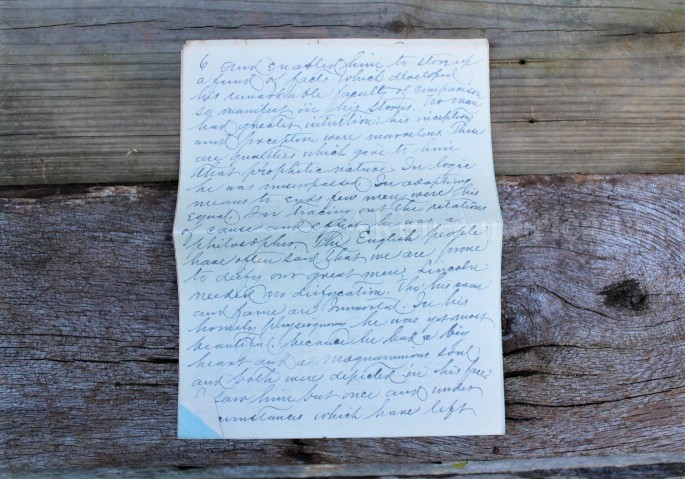 6 and enabled him to storeup
a fund of facts which developed
his remarkable faculty of comparison
so manifest in his stories. No man
had greater intuition; his inception
and perception were marvelous. These
are qualities which gave to him
that prophetic nature. In logic
he was unsurpassed. In adapting
means to ends few men were his
Equal. In tracing out the relations
of cause and effect he was a
Philosopher. The English people
have often said that we are prone
to deify our great men, Lincoln
needed no deification. Tho his name
and fame are Immortal. In his
homely physiognomy he was yet most
beautiful, because he had a big
heart and a magnanimous soul
and both were depicted in his face
I saw him but once and under
circumstances which have left